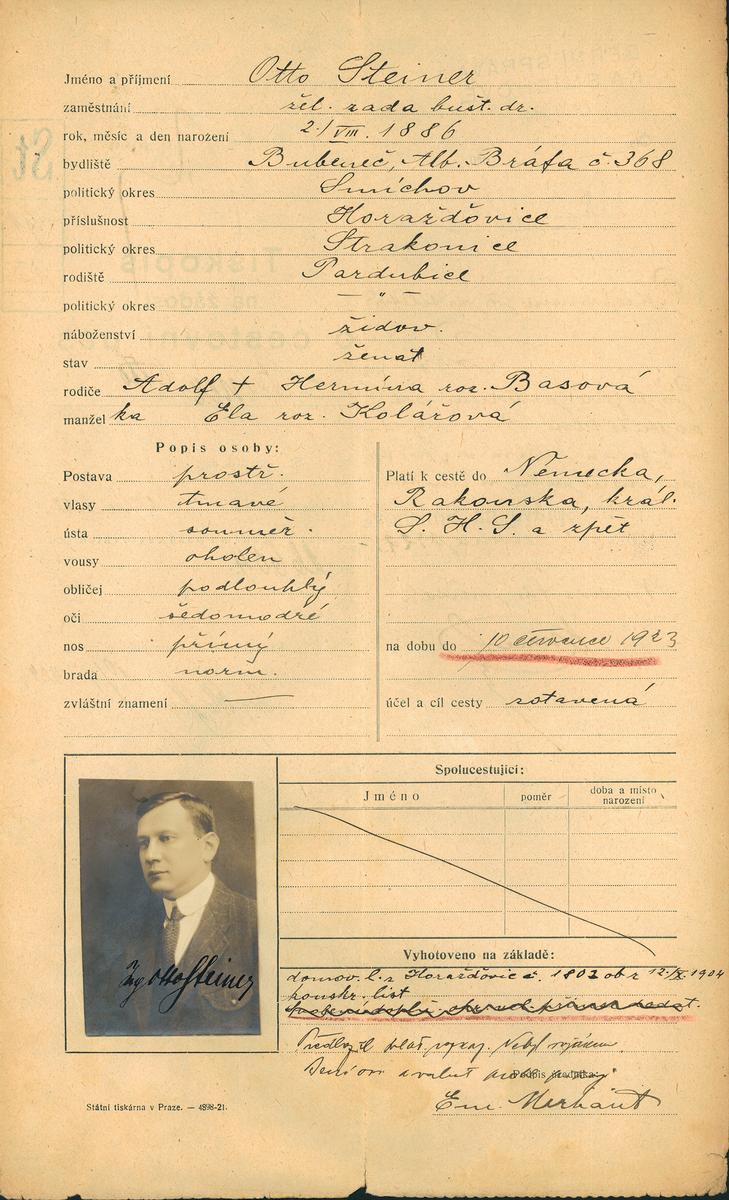 Jméno a příjmení Otto Steiner
zaměstnání žel. rada bušt. dr.
rok, měsíc a den narození 2./VIII. 1886
bydliště Bubeneč, Alb. Bráfa č. 368
politický okres Smíchov
příslušnost Horažďovice
politický okres Strakonice
rodiště Pardubice
politický okres — " —
náboženství židov.
stav ženat
rodiče Adolf + Hermína roz. Basová
manžel ka Ela roz. Kolářová
Popis osoby:
Postava prostř.
vlasy tmavé
ústa souměr.
vousy oholen
obličej podlouhlý
oči šedomodré
nos přímý
brada norm.
zvláštní znamení —
Platí k cestě do Německa,
Rakouska, král.
S. H. S. a zpět
na dobu do 10 července 1923
účel a cíl cesty zotavená
Spolucestující:
Jméno poměr doba a místo narození
Ing Otto Steiner
Vyhotoveno na základě:
domov. l. z Horažďovic č. 1803 ob z 12./IX. 1904
konskr. list
Předložil
Podpis úředníka:
Em. Merhaut
Státní tiskárna v Praze. — 4898-21.